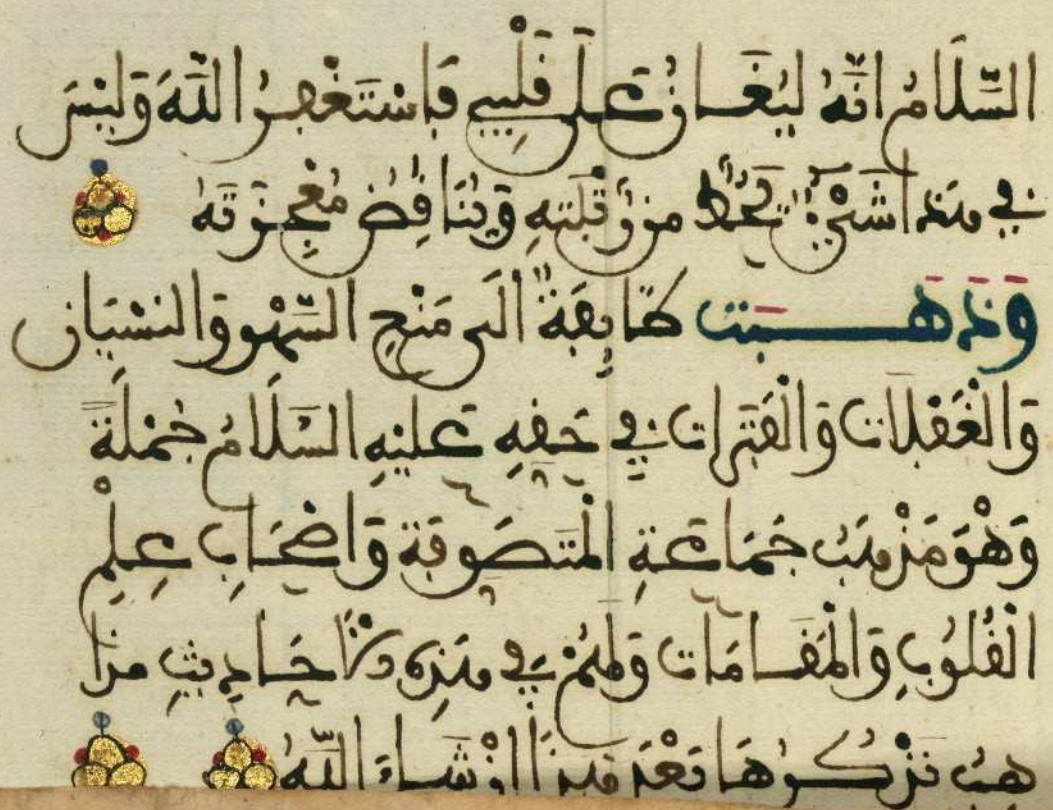 السَّلَامُ انَّهُ لَيُغَانُ عَلَى قَلْبِي فَاسْتَغْفِرُ اللَّهَ وَلَيْسَ
في هذا شَيْءٌ يَحُطُّ من رُتْبَتِهِ وَيُنَاقِضُ مُعْجِزَتَهُ
وَذَهَبَت طَايِفَةٌ الَى مَنْعِ السَّهْوِ وَالنِّسْيَانِ
وَالْغَفَلَاتِ وَالْفَتَرَاتِ في حَقِّهِ عَلَيْهِ السَّلَامُ جُمْلَةً
وَهْوَ مَذْهَبُ جَمَاعَةِ الْمُتَصَوِّفَةِ وَاصْحَابِ عِلْمِ
الْقُلُوبِ وَالْمَقَامَاتِ وَلَهُمْ في هَذِهِ الْاحَادِيثِ مَذَا
هبُ نَذْكُرُهَا بَعْدَ هَذَا انْ شَاءَ اللَّهُ